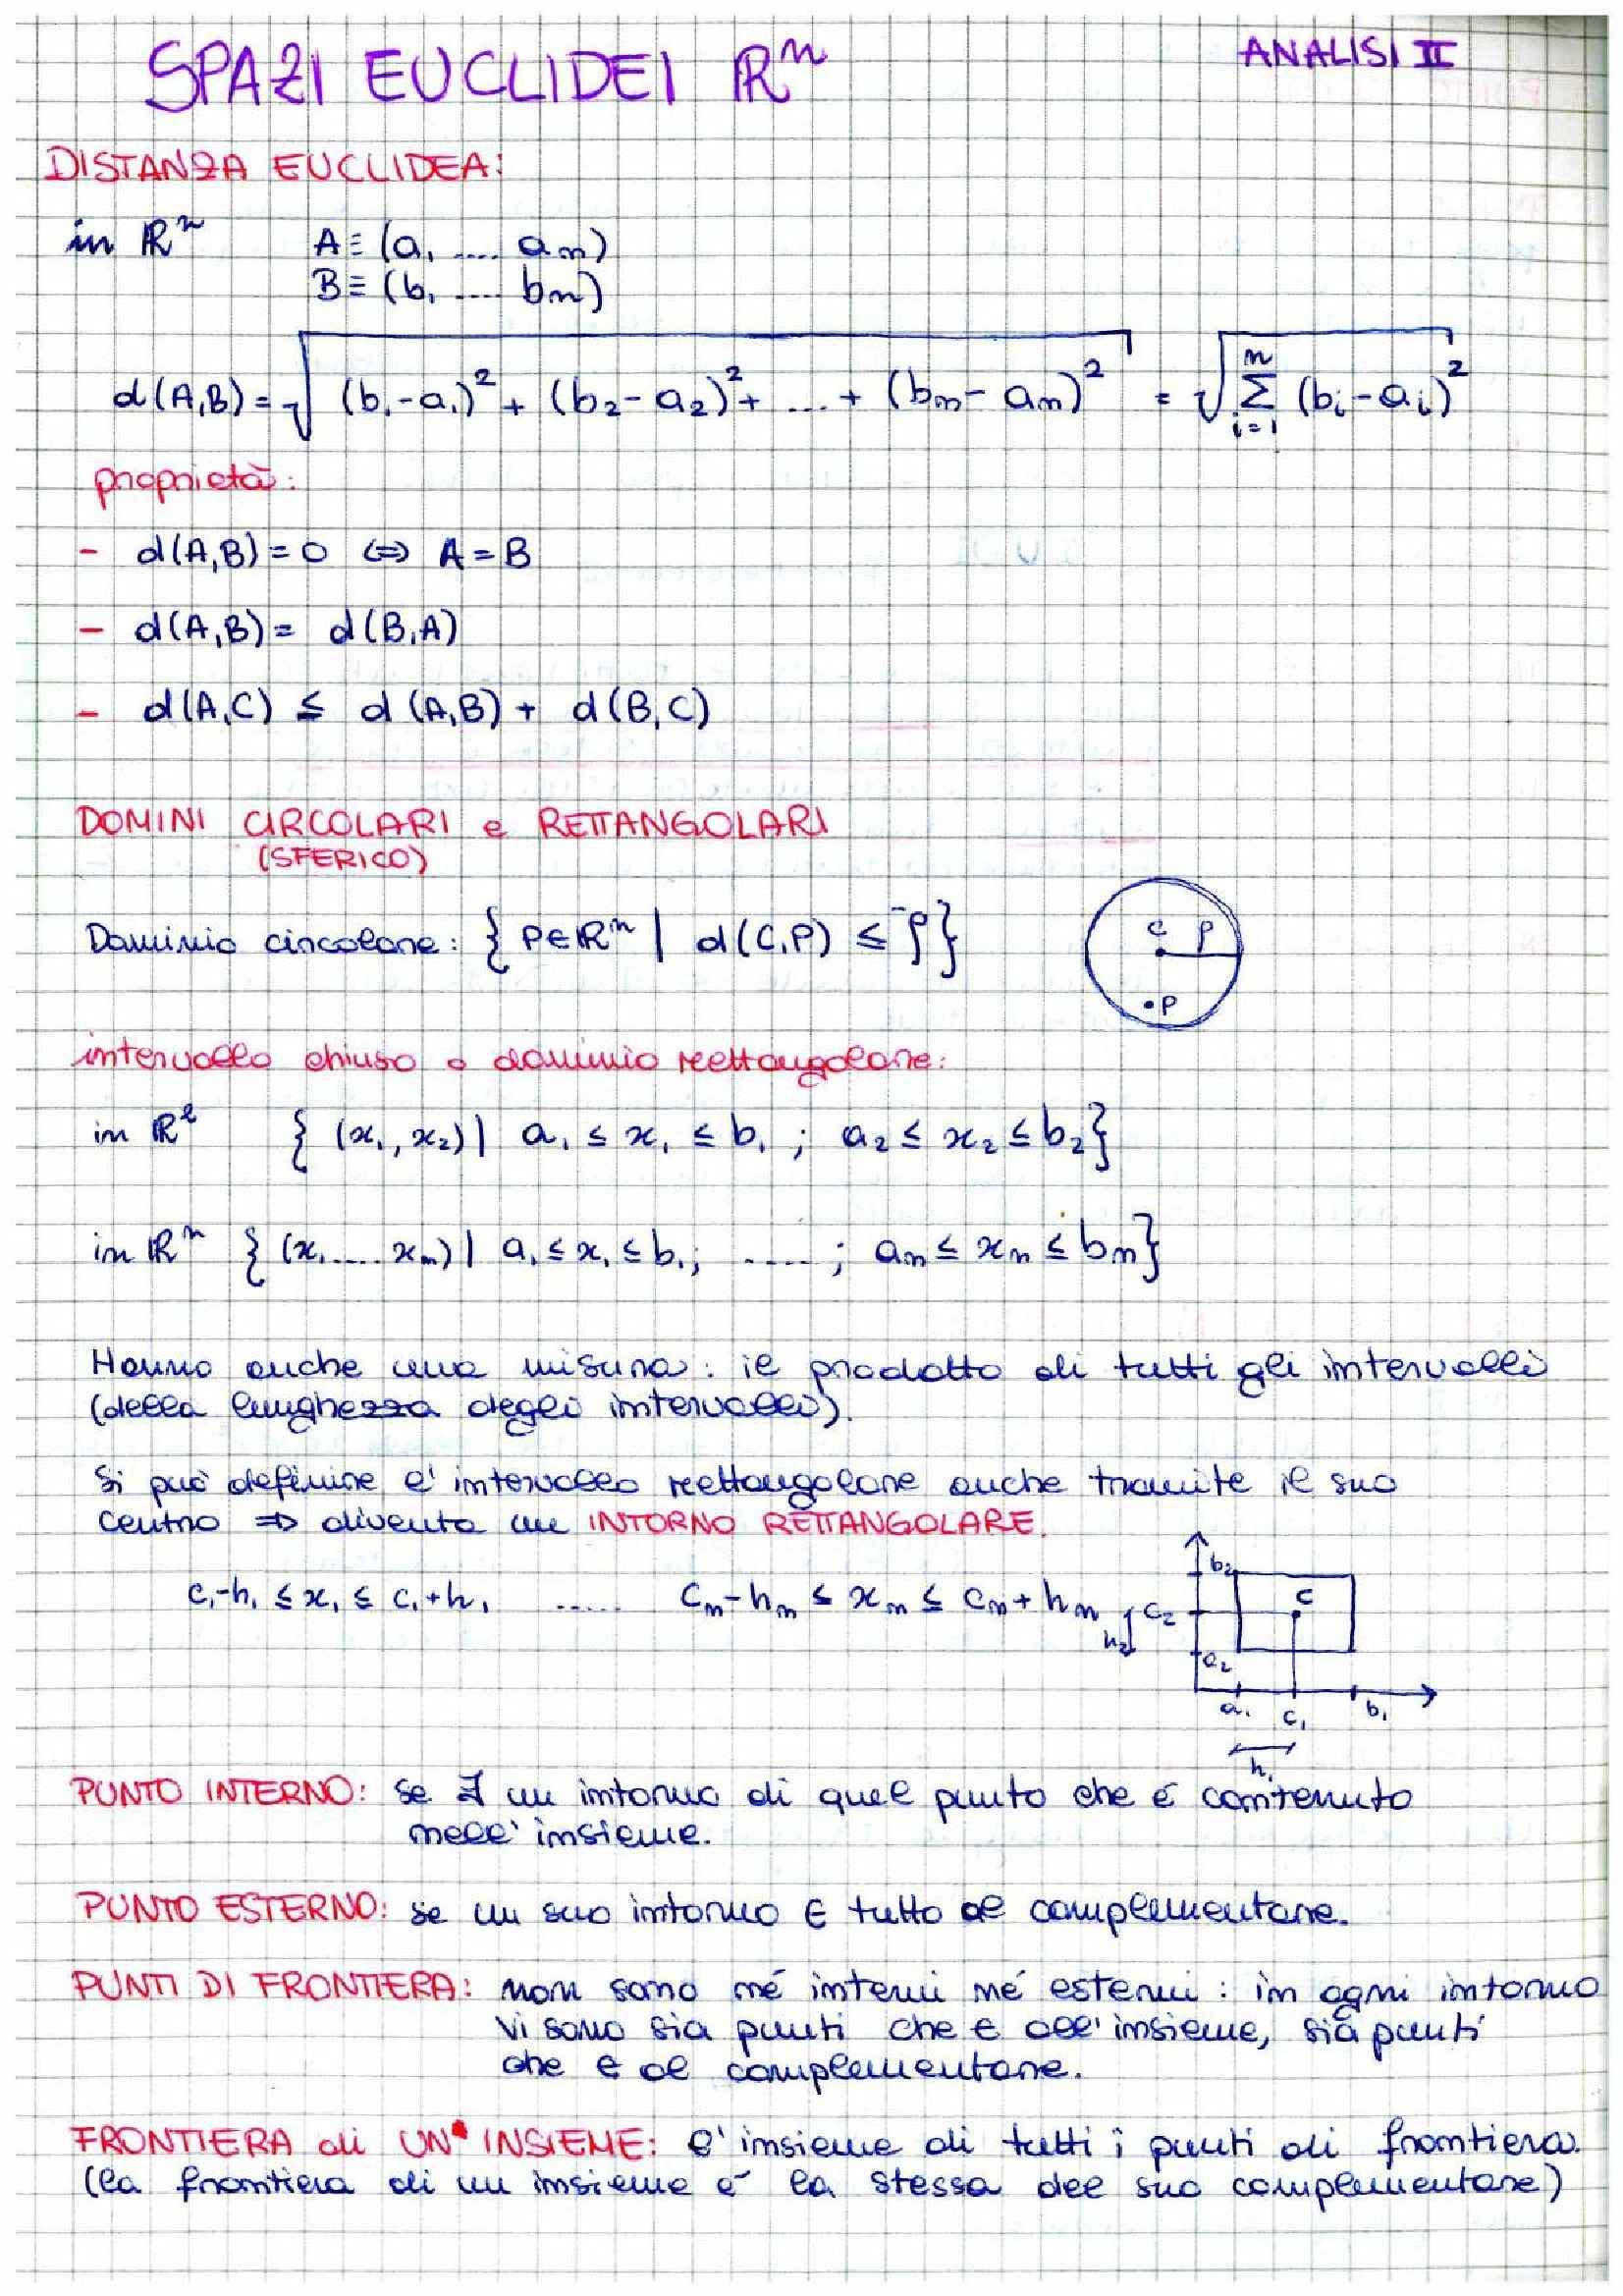 SPAZI EUCLIDEI ℝⁿ
ANALISI II
DISTANZA EUCLIDEA:
in ℝⁿ A≡(a₁ .... aₙ)
B≡(b₁ .... bₙ)
d(A,B)=√((b₁-a₁)²+(b₂-a₂)²+...+(bₙ-aₙ)²) = √(Σᵢ₌₁ⁿ (bᵢ-aᵢ)²)
proprietà:
- d(A,B)=0 ⇔ A=B
- d(A,B)= d(B,A)
- d(A,C) ≤ d(A,B)+ d(B,C)
DOMINI CIRCOLARI e RETTANGOLARI
(SFERICO)
Dominio circolare: { P∈ℝⁿ | d(C,P) ≤ ρ}
C ρ
•P
intervallo chiuso o dominio rettangolare:
in ℝ² { (x₁,x₂)| a₁≤x₁≤b₁; a₂≤x₂≤b₂}
in ℝⁿ { (x₁....xₙ)| a₁≤x₁≤b₁; .....; aₙ≤xₙ≤bₙ}
Hanno anche una misura: il prodotto di tutti gli intervalli
(della lunghezza degli intervalli).
Si può definire l'intervallo rettangolare anche tramite il suo
centro ⇒ diventa un INTORNO RETTANGOLARE.
c₁-h₁≤x₁≤c₁+h₁ ..... cₙ-hₙ≤xₙ≤cₙ+hₙ
b₂
c
c₂
h₂
a₂
a₁ c₁ b₁
h₁
PUNTO INTERNO: se ∃ un intorno di quel punto che è contenuto
nell'insieme.
PUNTO ESTERNO: se un suo intorno ∈ tutto al complementare.
PUNTI DI FRONTIERA: non sono né interni né esterni: in ogni intorno
vi sono sia punti che ∈ all'insieme, sia punti
che ∈ al complementare.
FRONTIERA di UN INSIEME: l'insieme di tutti i punti di frontiera.
(la frontiera di un insieme è la stessa del suo complementare)